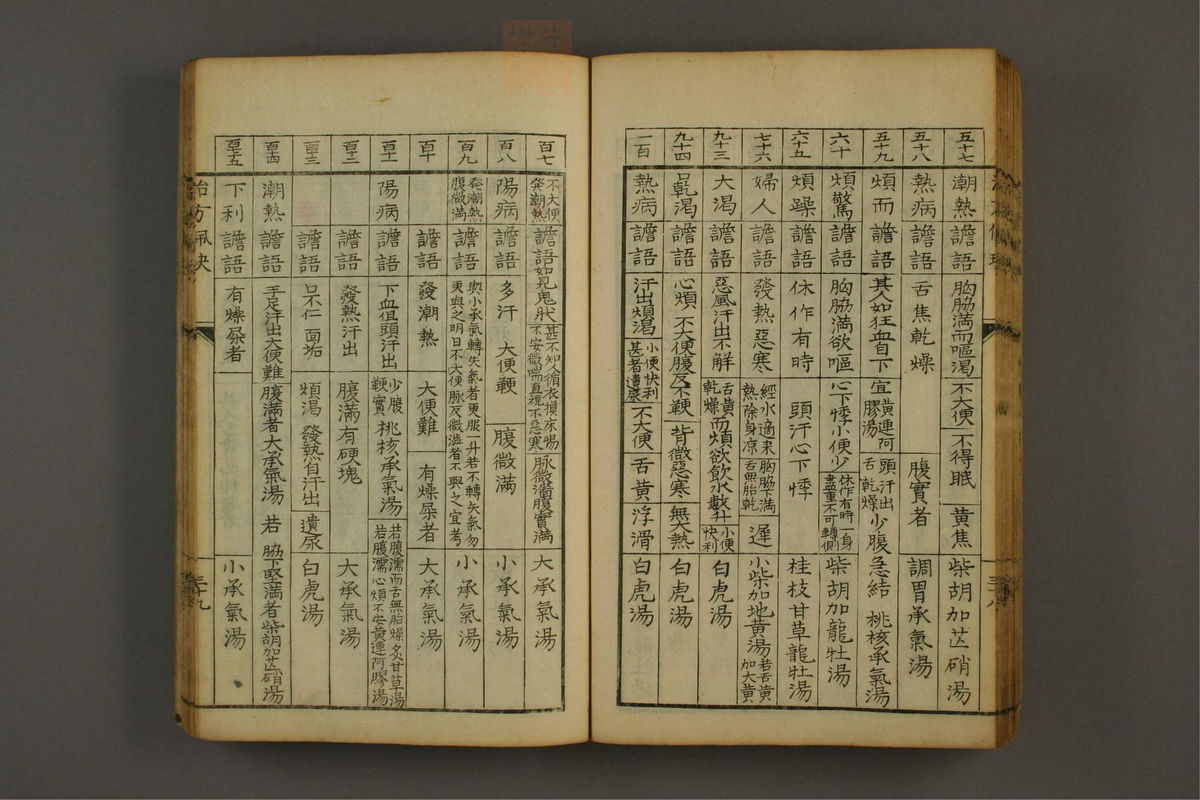 五十七 潮熱 譫語 胸脇滿而嘔渴 不大便 不得眠 黃焦 柴胡加芒硝湯
五十八 熱病 譫語 舌焦乾燥 腹實者 調胃承氣湯
五十九 煩而 譫語 其人如狂血自下 宜黃連阿膠湯 頭汗出舌乾燥 少腹急結 桃核承氣湯
六十 煩驚 譫語 胸脇滿欲嘔 心下悸小便少 休作有時一身盡重不可轉側 柴胡加龍牡湯
六十五 煩躁 譫語 休作有時 頭汗心下悸 桂枝甘草龍牡湯
七十六 婦人 譫語 發熱惡寒 經水適来熱除身凉 胸脇下滿舌無胎乾 遲 小柴加地黃湯 若舌黃加大黃
九十三 大渴 譫語 惡風汗出不解 舌黃而乾燥 煩欲飲水數升 小便快利 白虎湯
九十四 口乾渴 譫語 心煩 不大便腹反不鞕 背微惡寒 無大熱 白虎湯
一百 熱病 譫語 汗出煩渴 小便快利甚者遺尿 不大便 舌黃 浮滑 白虎湯
百七 不大便發潮熱 譫語 如見鬼狀 甚不知人循衣摸床惕不安微喘直視不惡寒 脉微濇腹實滿 大承氣湯
百八 陽病 譫語 多汗 大便鞕 腹微滿 小承氣湯
百九 發潮熱腹微滿 譫語 與小承氣轉失氣者更服一升若不轉矢氣勿更與之明日不大便脉反微濇者不與之宜考 小承氣湯
百十 譫語 發潮熱 大便難 有燥屎者 大承氣湯
百十一 陽病 譫語 下血但頭汗出 少腹鞕實 桃核承氣湯 若腹濡而舌無胎燥炙甘草湯若腹濡心煩不安黃連阿膠湯
百十二 譫語 發熱汗出 腹滿有硬塊 大承氣湯
百十三 譫語 口不仁 面垢 煩渴 發熱自汗出 遺尿 白虎湯
百十四 潮熱 譫語 手足汗出大便難 腹滿者大承氣湯 若 脇下堅滿者柴胡加芒硝湯
百十五 下利 譫語 有燥屎者 小承氣湯
治方
三十九